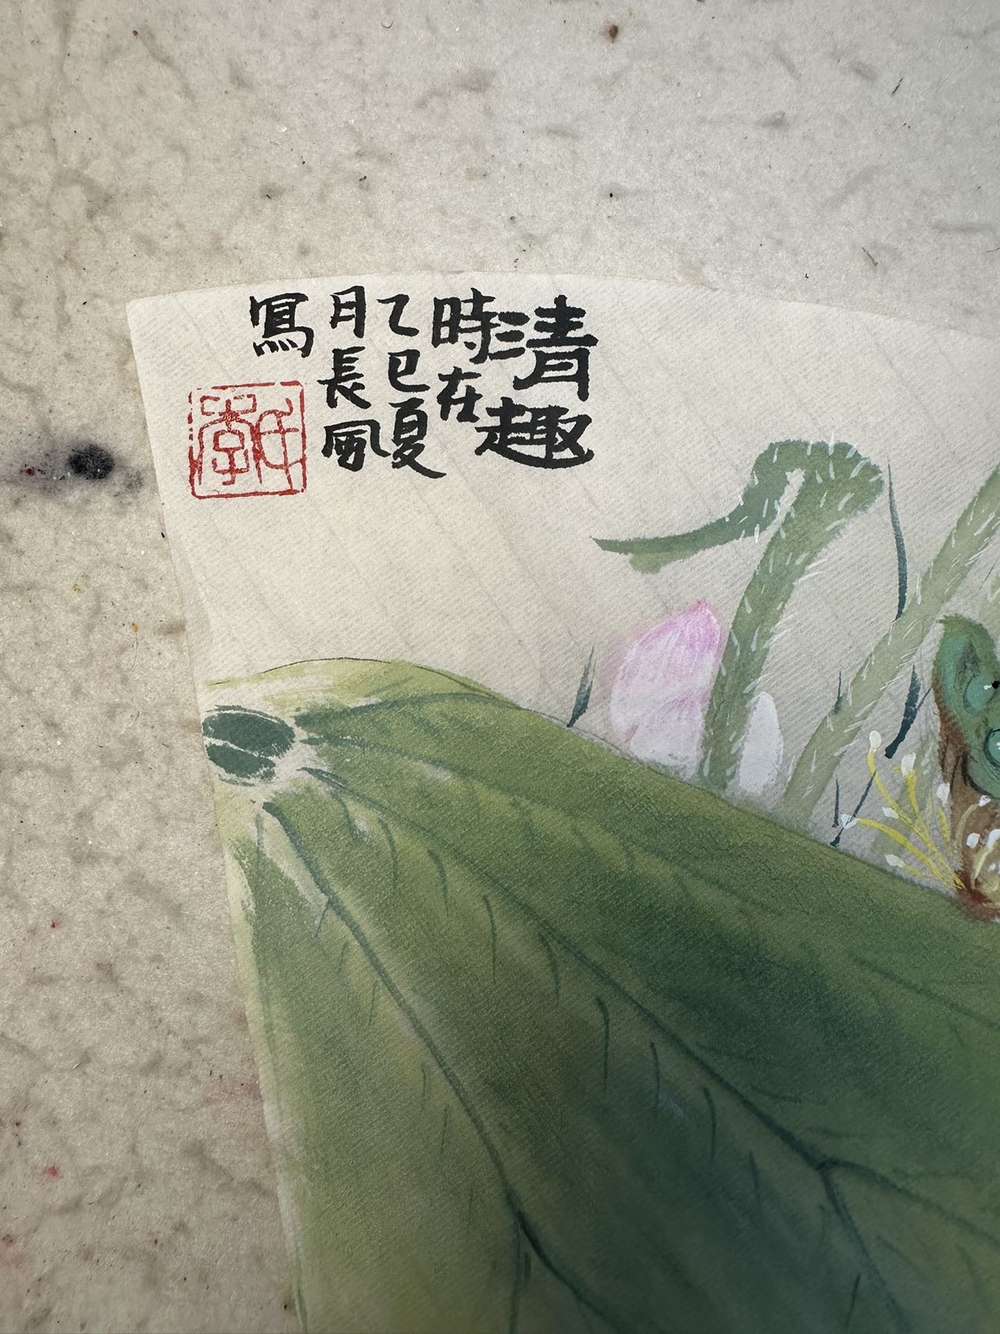 清趣
時在
乙巳夏
月長風
寫